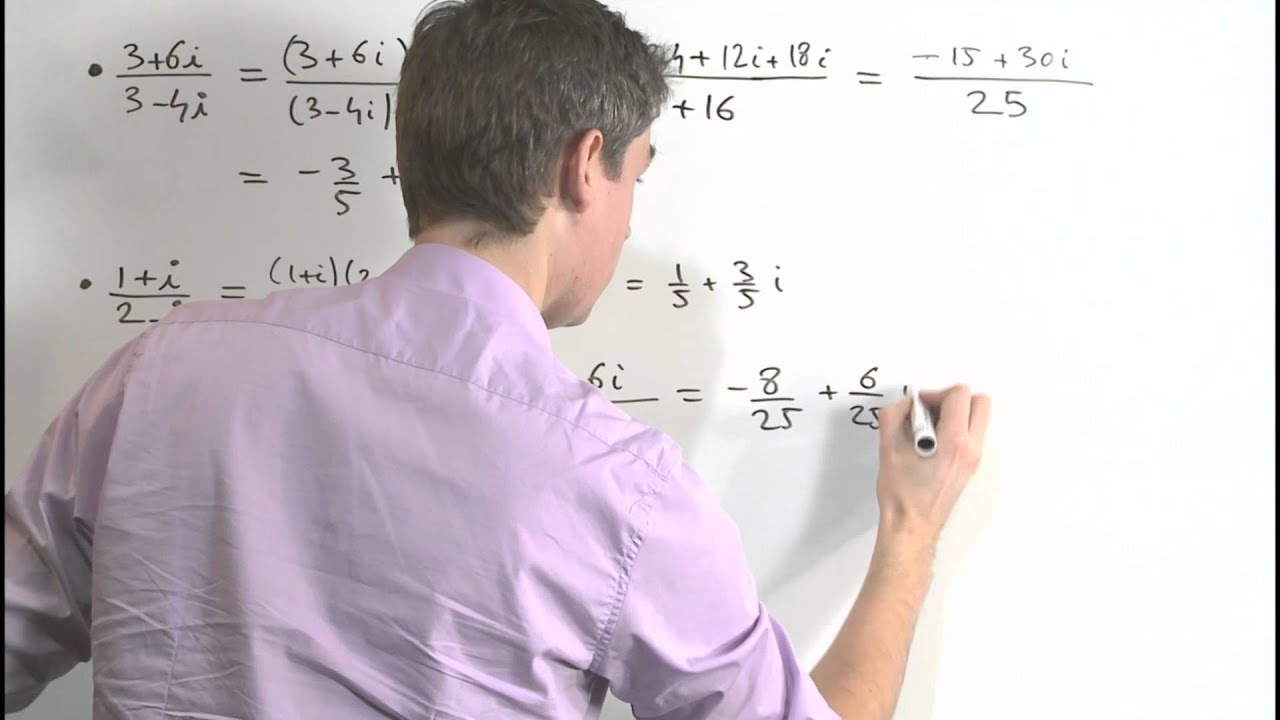 • 3+6i / 3-4i = (3+6i) / (3-4i) 4+12i+18i / +16 = -15+30i / 25
= -3/5 +
• 1+i / 2-i = (1+i)(2 = 1/5 + 3/5 i
6i = -8/25 + 6/25